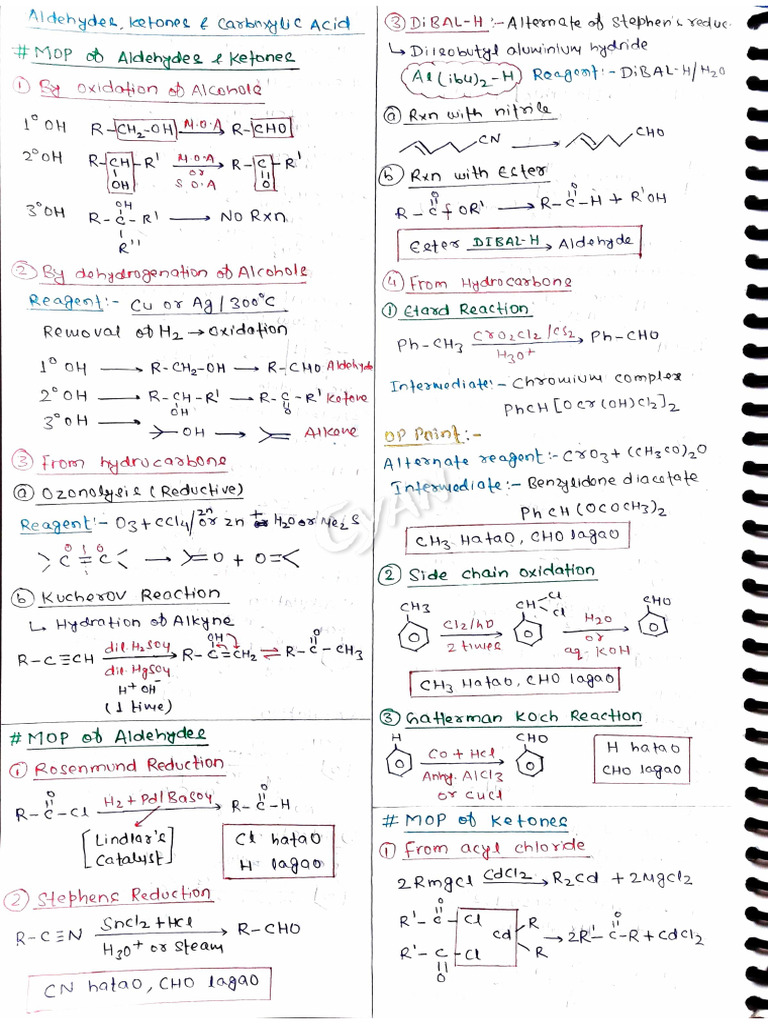 Aldehydes, Ketones & Carboxylic Acid
# MOP of Aldehydes & Ketones
① By oxidation of Alcohols
1° OH R-CH2-OH M.O.A R-CHO
2° OH R-CH-R' M.O.A R-C-R'
OH or S.O.A O
OH
3° OH R-C-R' → NO Rxn
R''
② By dehydrogenation of Alcohols
Reagent:- Cu or Ag/300°C
Removal of H2 → Oxidation
1° OH → R-CH2-OH → R-CHO Aldehyde
2° OH → R-CH-R' → R-C-R' Ketone
OH O
3° OH → OH → Alkene
③ From hydrocarbons
ⓐ Ozonolysis (Reductive)
Reagent:- O3+CCl4/or zn + H2O or Me2S
C=C → =O + O=
ⓑ Kucherov Reaction
↳ Hydration of Alkyne
R-C≡CH dil. H2SO4 dil. HgSO4 R-C=CH2 ⇌ R-C-CH3
OH O
H+ OH-
(1 time)
# MOP of Aldehydes
① Rosenmund Reduction
R-C-Cl H2+Pd/BaSO4 R-C-H
O O
[Lindlar's Catalyst]
Cl hatao
H lagao
② Stephens Reduction
R-C≡N SnCl2+HCl R-CHO
H3O+ or steam
CN hatao, CHO lagao
③ DiBAL-H:- Alternate of Stephen's reduc.
↳ Diisobutyl aluminium hydride
Al(ibu)2-H Reagent:- DiBAL-H/H2O
ⓐ Rxn with nitrile
CN → CHO
ⓑ Rxn with Ester
R-C-OR' → R-C-H + R'OH
O O
Ester DIBAL-H → Aldehyde
④ From Hydrocarbons
① Etard Reaction
Ph-CH3 CrO2Cl2/CS2 Ph-CHO
H3O+
Intermediate:- Chromium complex
PhCH[OCr(OH)Cl2]2
OP Point:-
Alternate reagent:- CrO3+(CH3CO)2O
Intermediate:- Benzylidone diacetate
PhCH(OCOCH3)2
CH3 Hatao, CHO lagao
② Side chain oxidation
CH3 CH Cl Cl CHO
Cl2/hν H2O
2 times or
aq. KOH
CH3 Hatao, CHO lagao
③ Gatterman Koch Reaction
H CHO
CO + HCl
Anhy. AlCl3
or CuCl
H hatao
CHO lagao
# MOP of Ketones
① From acyl chloride
2Rmgcl CdCl2 → R2Cd + 2MgCl2
R'-C-Cl Cd R
O R
R'-C-Cl → 2R'-C-R + CdCl2
O O
GYAN